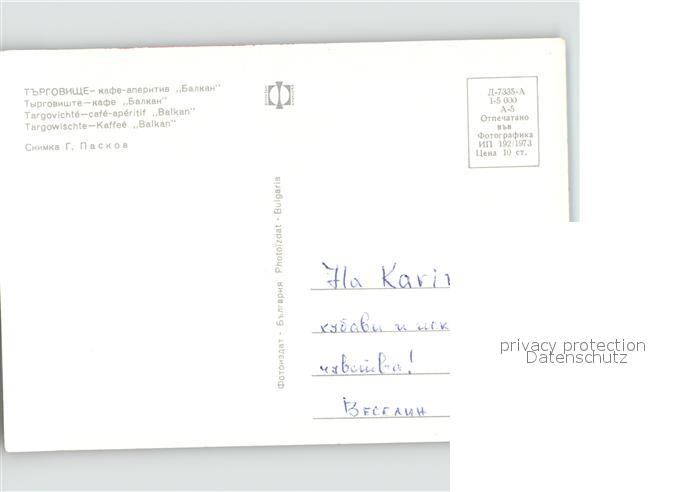 ТЪРГОВИЩЕ — кафе-аперитив „Балкан"
Тырговиште — кафе „Балкан"
Targovichté — café-apéritif „Balkan"
Targowischte — Kaffeé „Balkan"
Снимка Г. Пасков
Д-7335-А
I-5 000
А-5
Отпечатано
във
Фотографика
ИП 192/1973
Цена 10 ст.
Фотоиздат - България Photoizdat - Bulgaria
На Karin
хубави и иск
чувства!
Веселин
privacy protection
Datenschutz